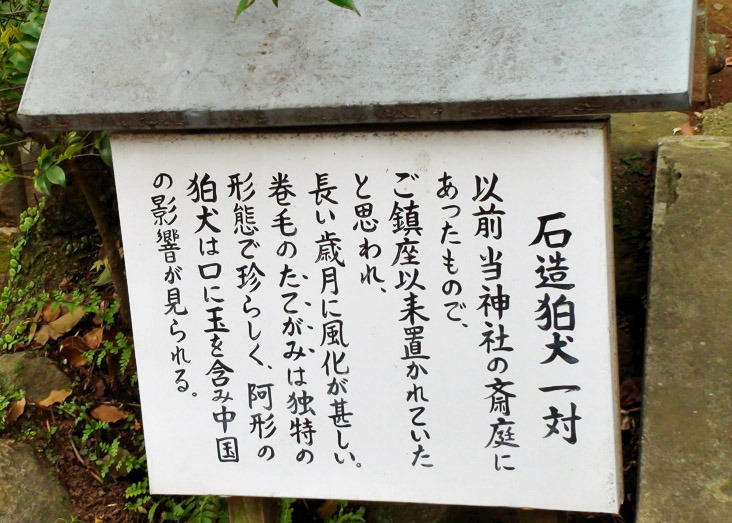 石造狛犬一対
以前当神社の斎庭に
あったもので、
ご鎮座以来置かれていた
と思われ、
長い歳月に風化が甚しい。
巻毛のたてがみは独特の
形態で珍らしく、阿形の
狛犬は口に玉を含み中国
の影響が見られる。